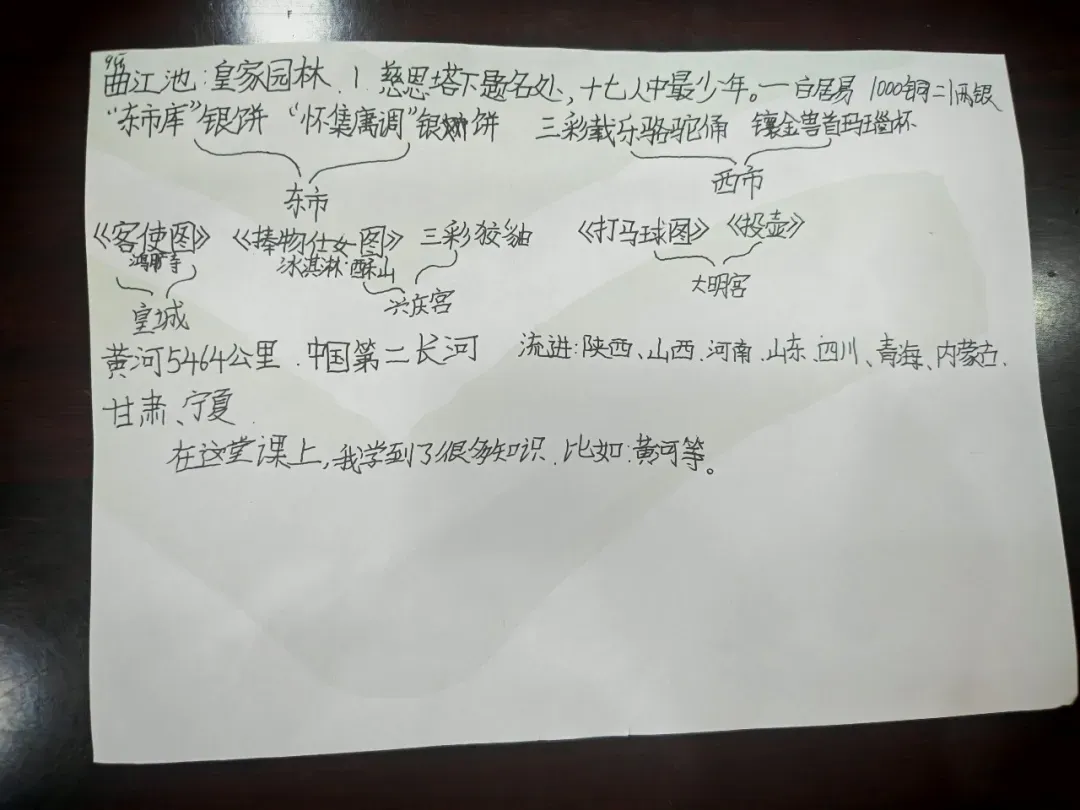 曲江池:皇家园林. 1. 慈恩塔下题名处,十七人中最少年。一白居易 1000铜=1俩银
“东市库”银饼 “怀集庸调”银饼 三彩载乐骆驼俑 镶金兽首玛瑙杯
东市 西市
《客使图》 《捧物仕女图》 三彩狡貐 《打马球图》 《投壶》
鸿胪寺 冰淇淋:酥山
皇城 兴庆宫 大明宫
黄河5464公里.中国第二长河 流进:陕西、山西.河南.山东.四川、青海、内蒙古.
甘肃、宁夏.
在这堂课上,我学到了很多知识.比如:黄河等。